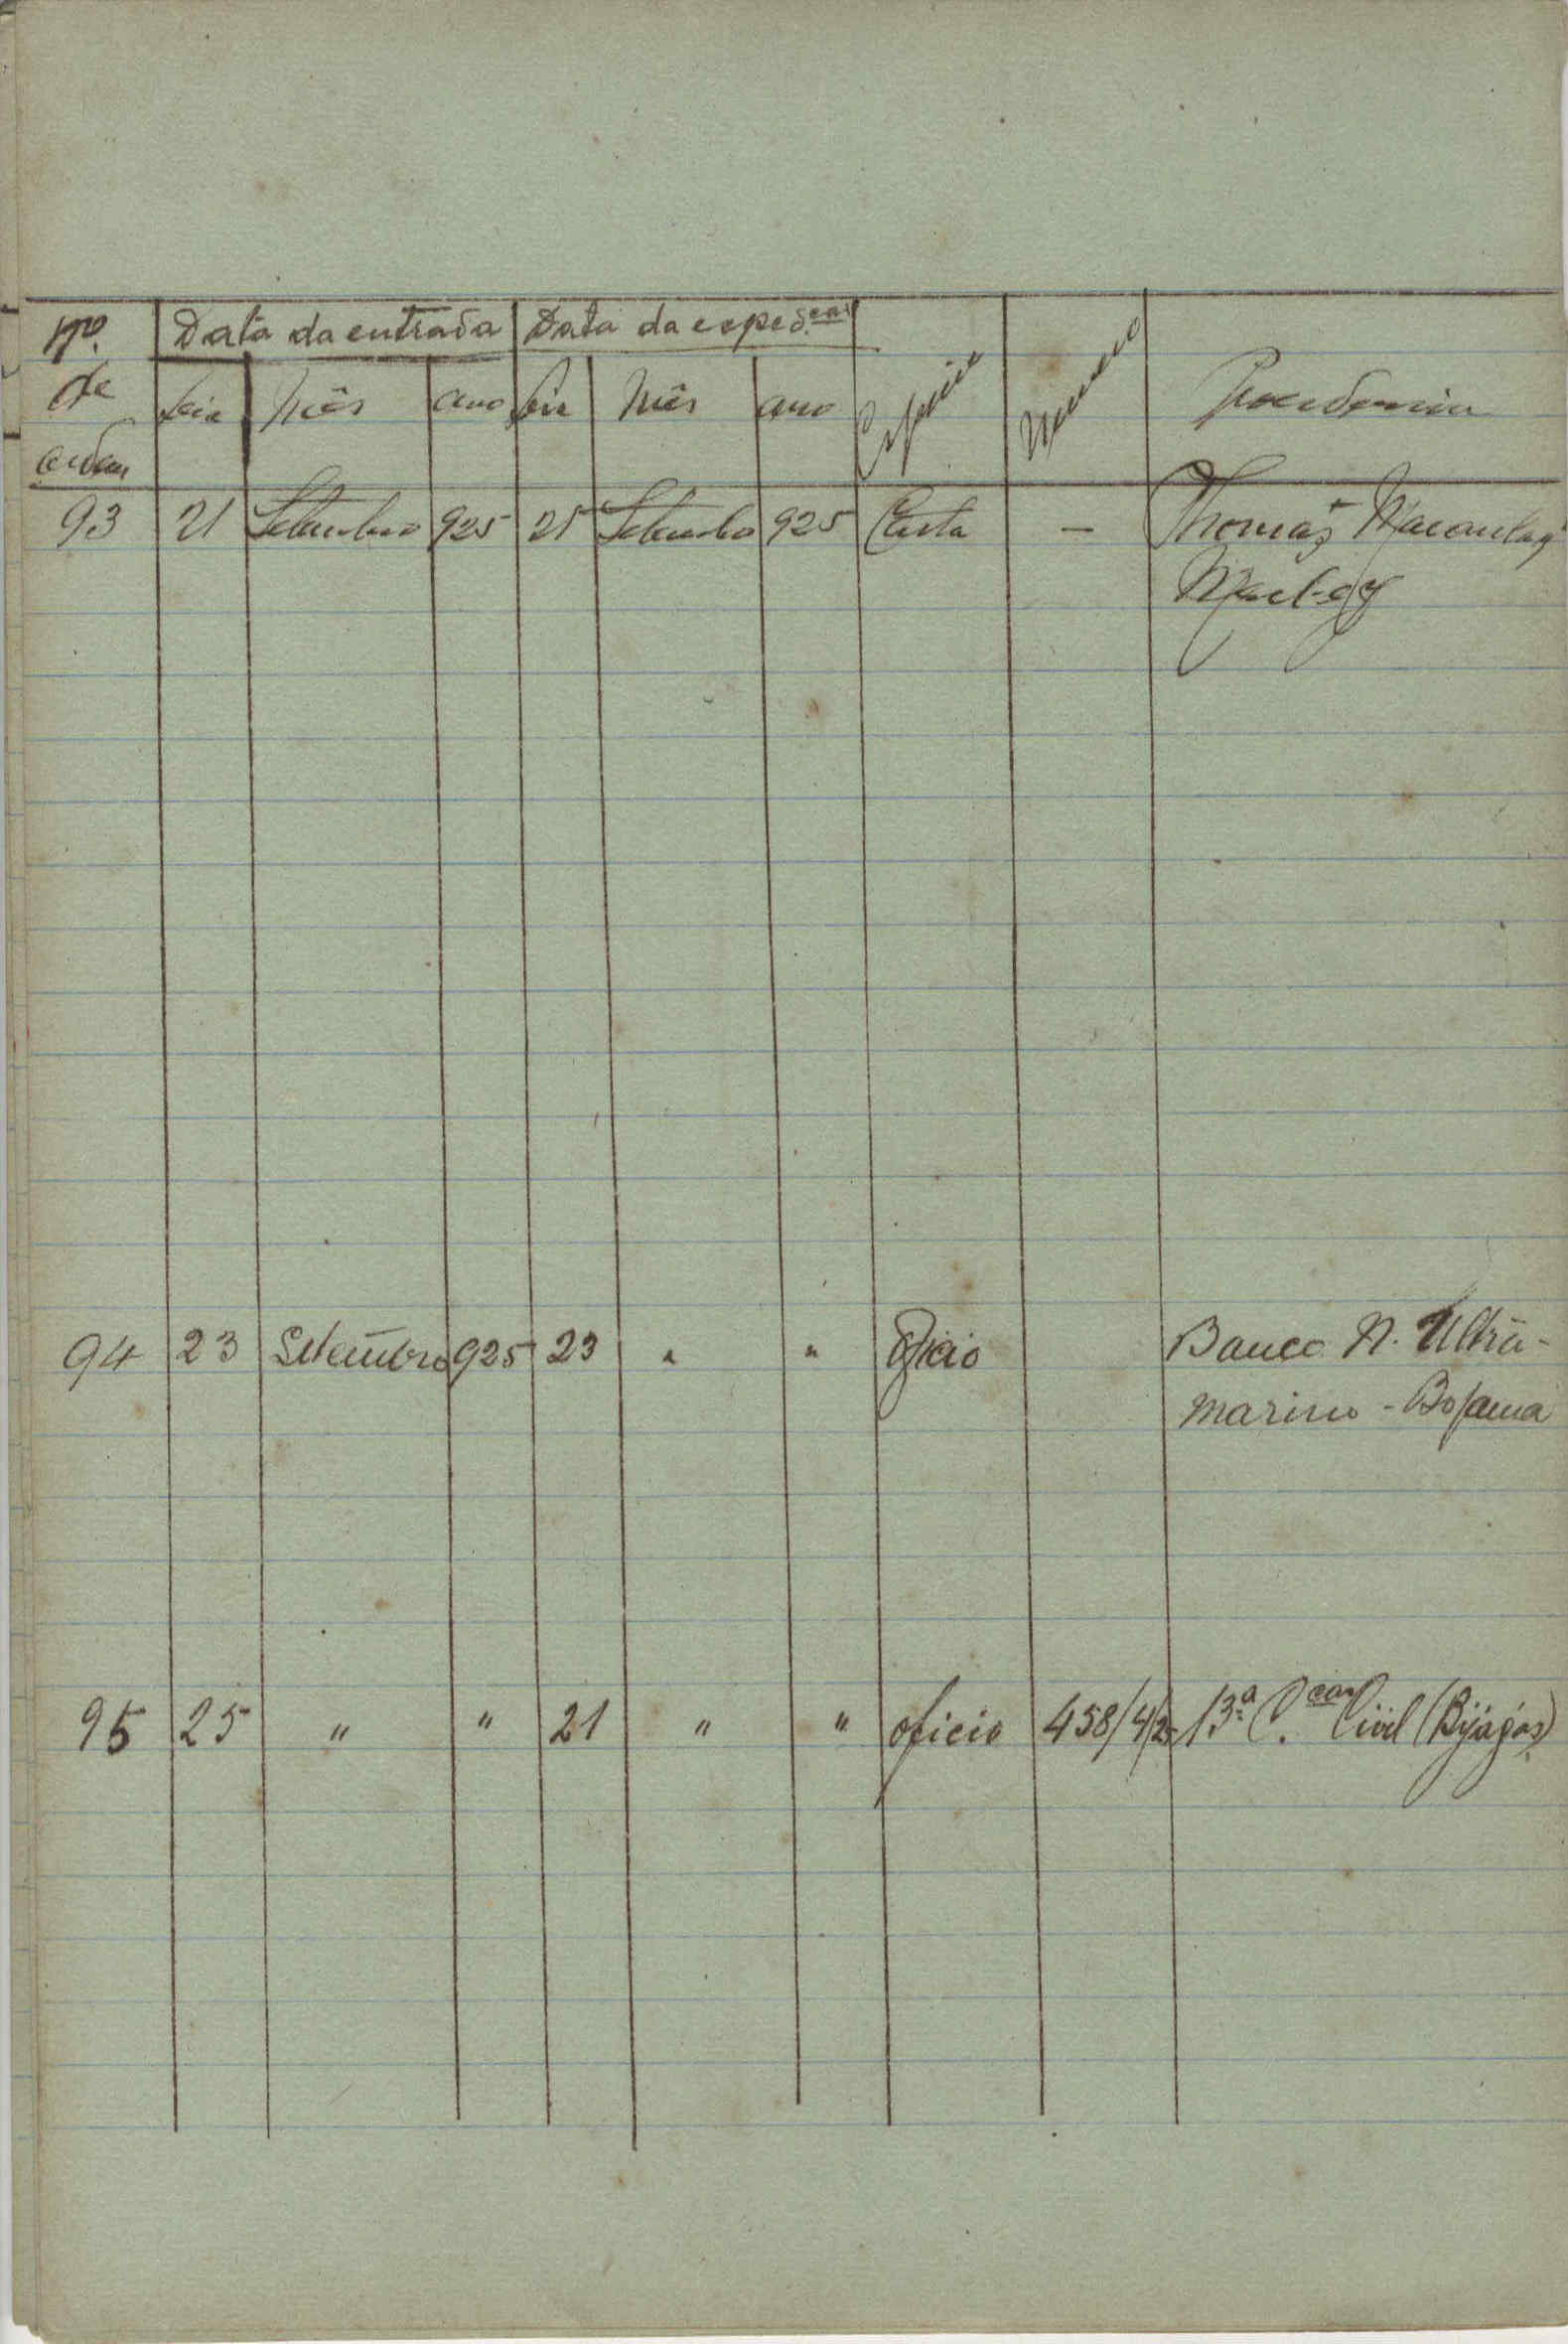 Nº. Data da entrada Data da exped.ção
de dia Mês ano dia Mês ano Especie Numero Procedencia
ordem
93 21 Setembro 925 21 Setembro 925 Carta — Thomaz Macaulay
94 23 Setembro 925 23 " " Oficio Banco N. Ultra-
marino - Bolama
95 25 " " 21 " " oficio 458/4/25 13ª C.cão Civil (Bijagós)